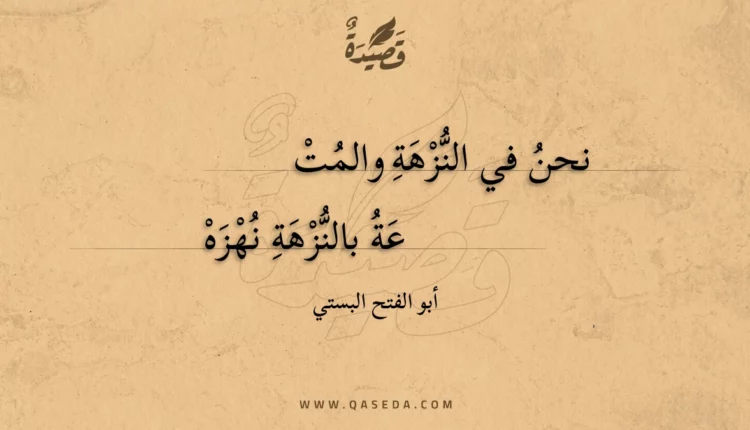 قَصِيدَةٌ
نحنُ في النُّزْهَةِ والمُتْ
عَةُ بالنُّزْهَةِ نُهْزَهْ
أبو الفتح البستي
WWW.QASEDA.COM